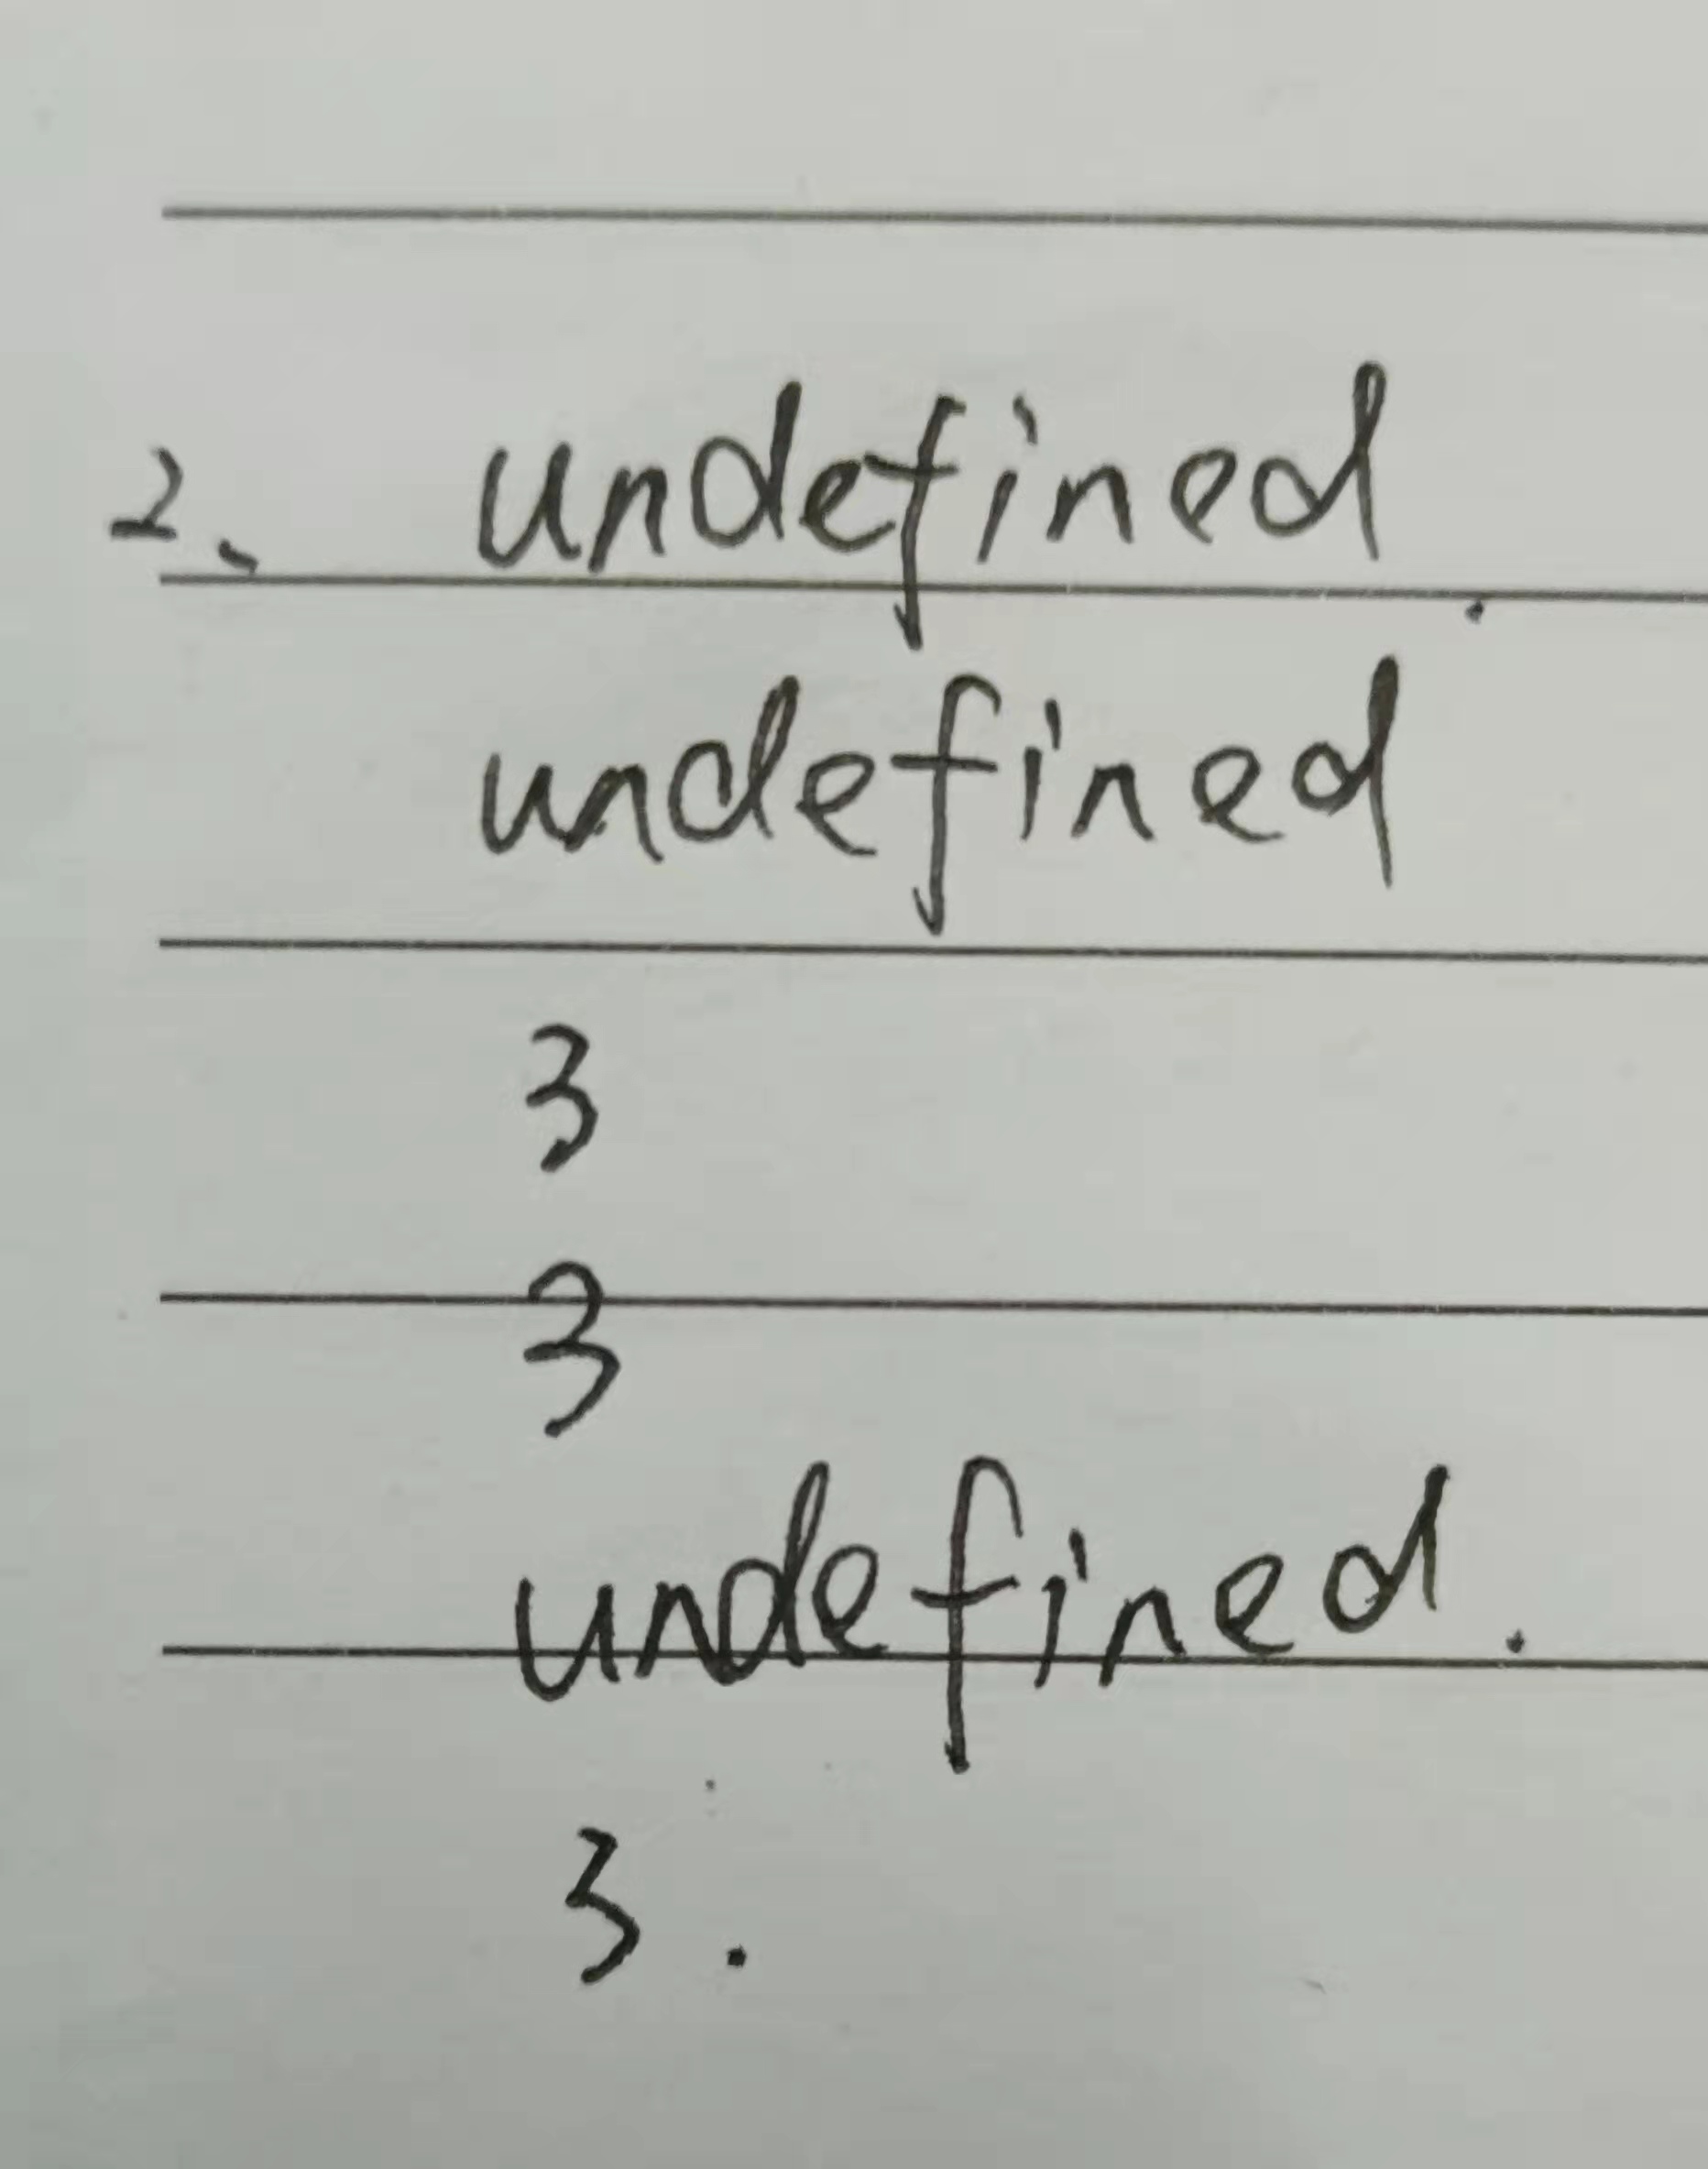 2、 undefined.
undefined
3
3
undefined.
3.